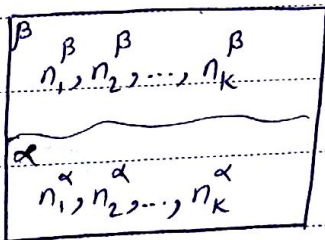 β
n₁^β, n₂^β, ..., n_K^β
α
n₁^α, n₂^α, ..., n_K^α